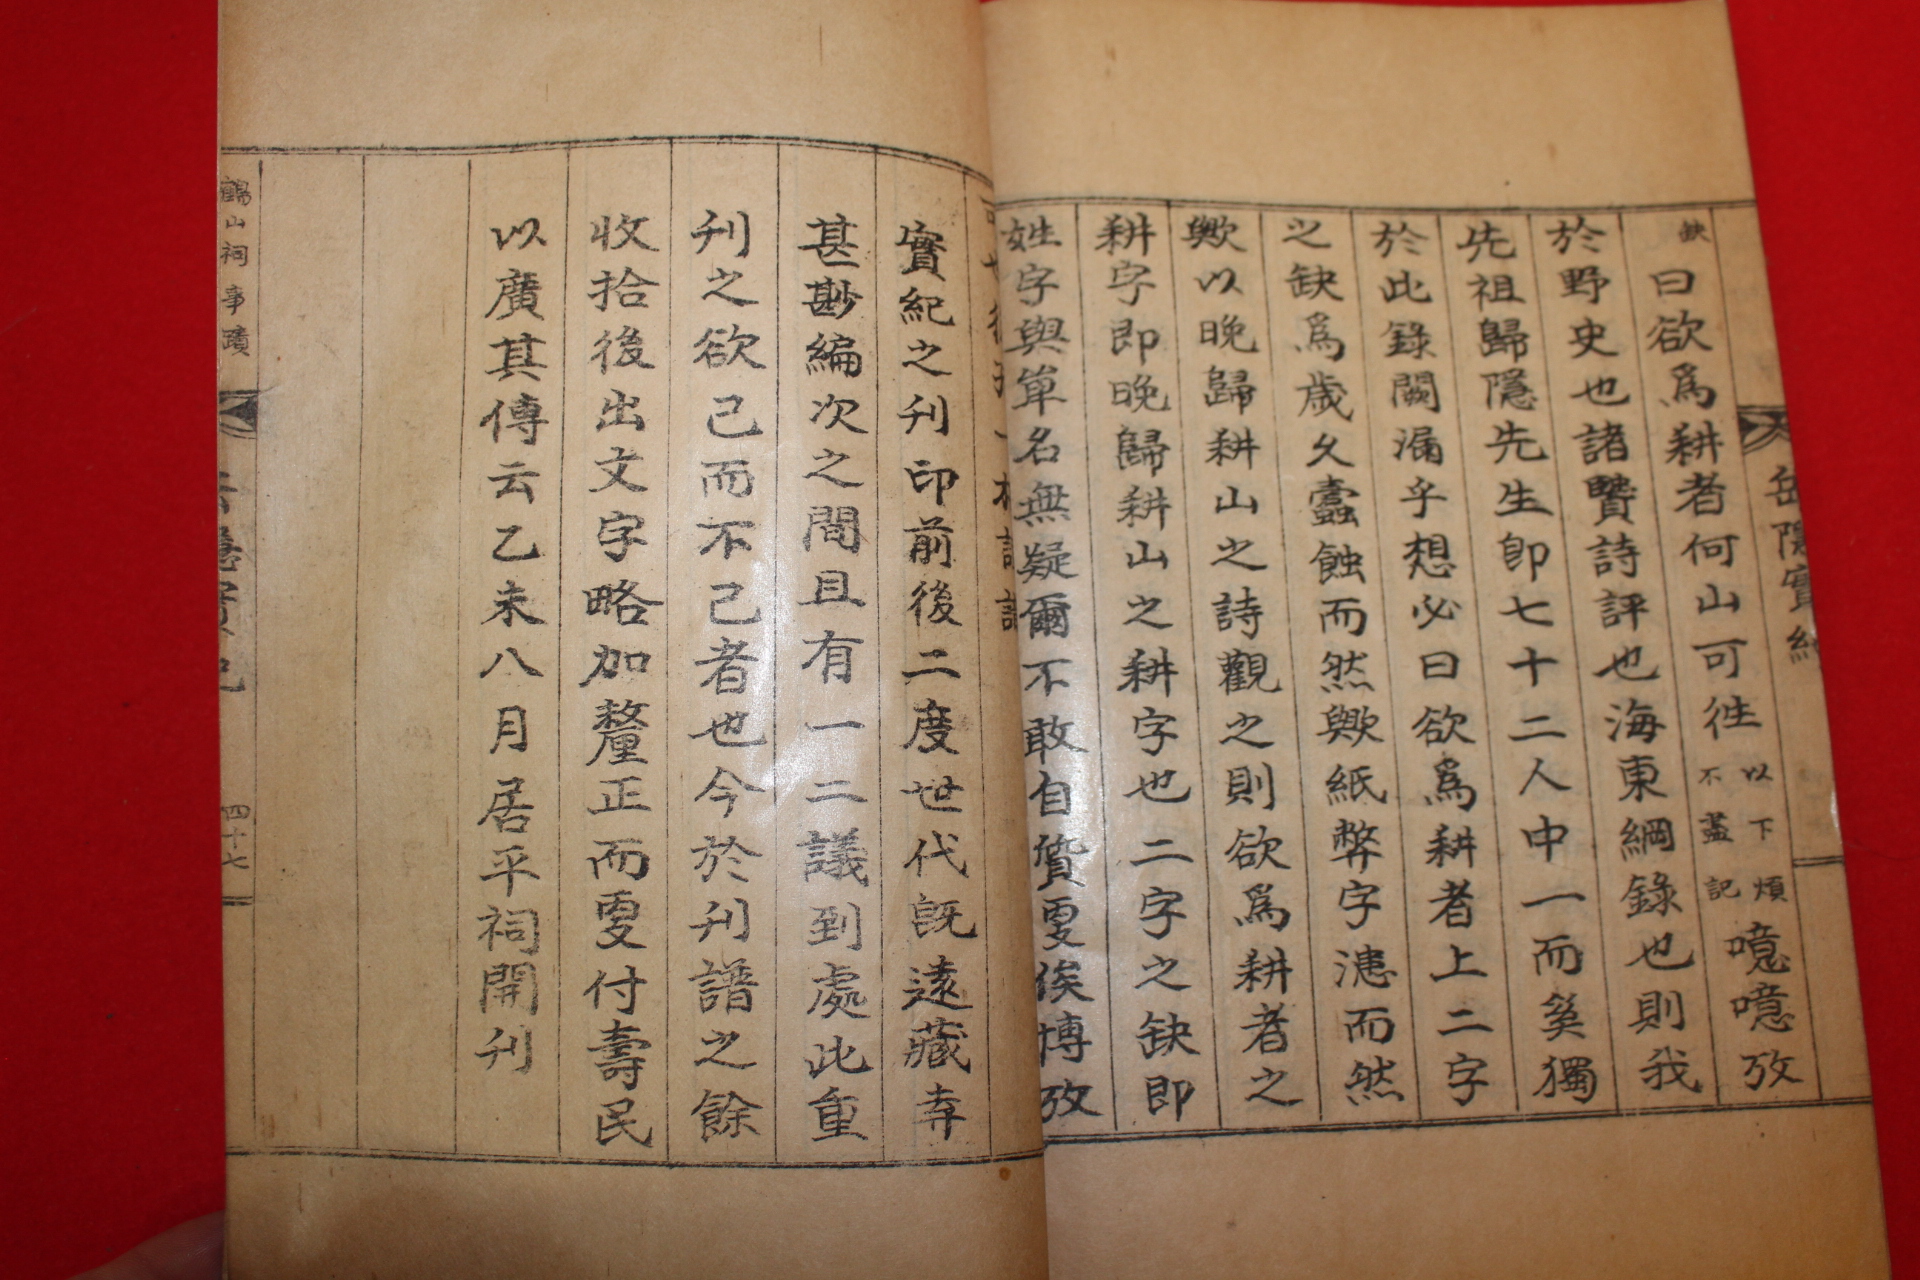 岳隱實紀
缺曰欲爲耕者何山可徃以下煩不盡記噫噫攷
於野史也諸贒詩評也海東綱錄也則我
先祖歸隱先生卽七十二人中一而奚獨
於此錄闕漏乎想必曰欲爲耕者上二字
之缺爲歲久蠹蝕而然歟紙弊字漶而然
歟以晩歸耕山之詩觀之則欲爲耕者之
耕字即晩歸耕山之耕字也二字之缺即
姓字與單名無疑爾不敢自質更俟博攷
實紀之刋印前後二度世代旣遠藏弆
甚尠編次之間且有一二議到處此重
刋之欲已而不已者也今於刋譜之餘
收拾後出文字略加釐正而更付壽民
以廣其傳云乙未八月居平祠開刋
鶴山祠事蹟
四十七